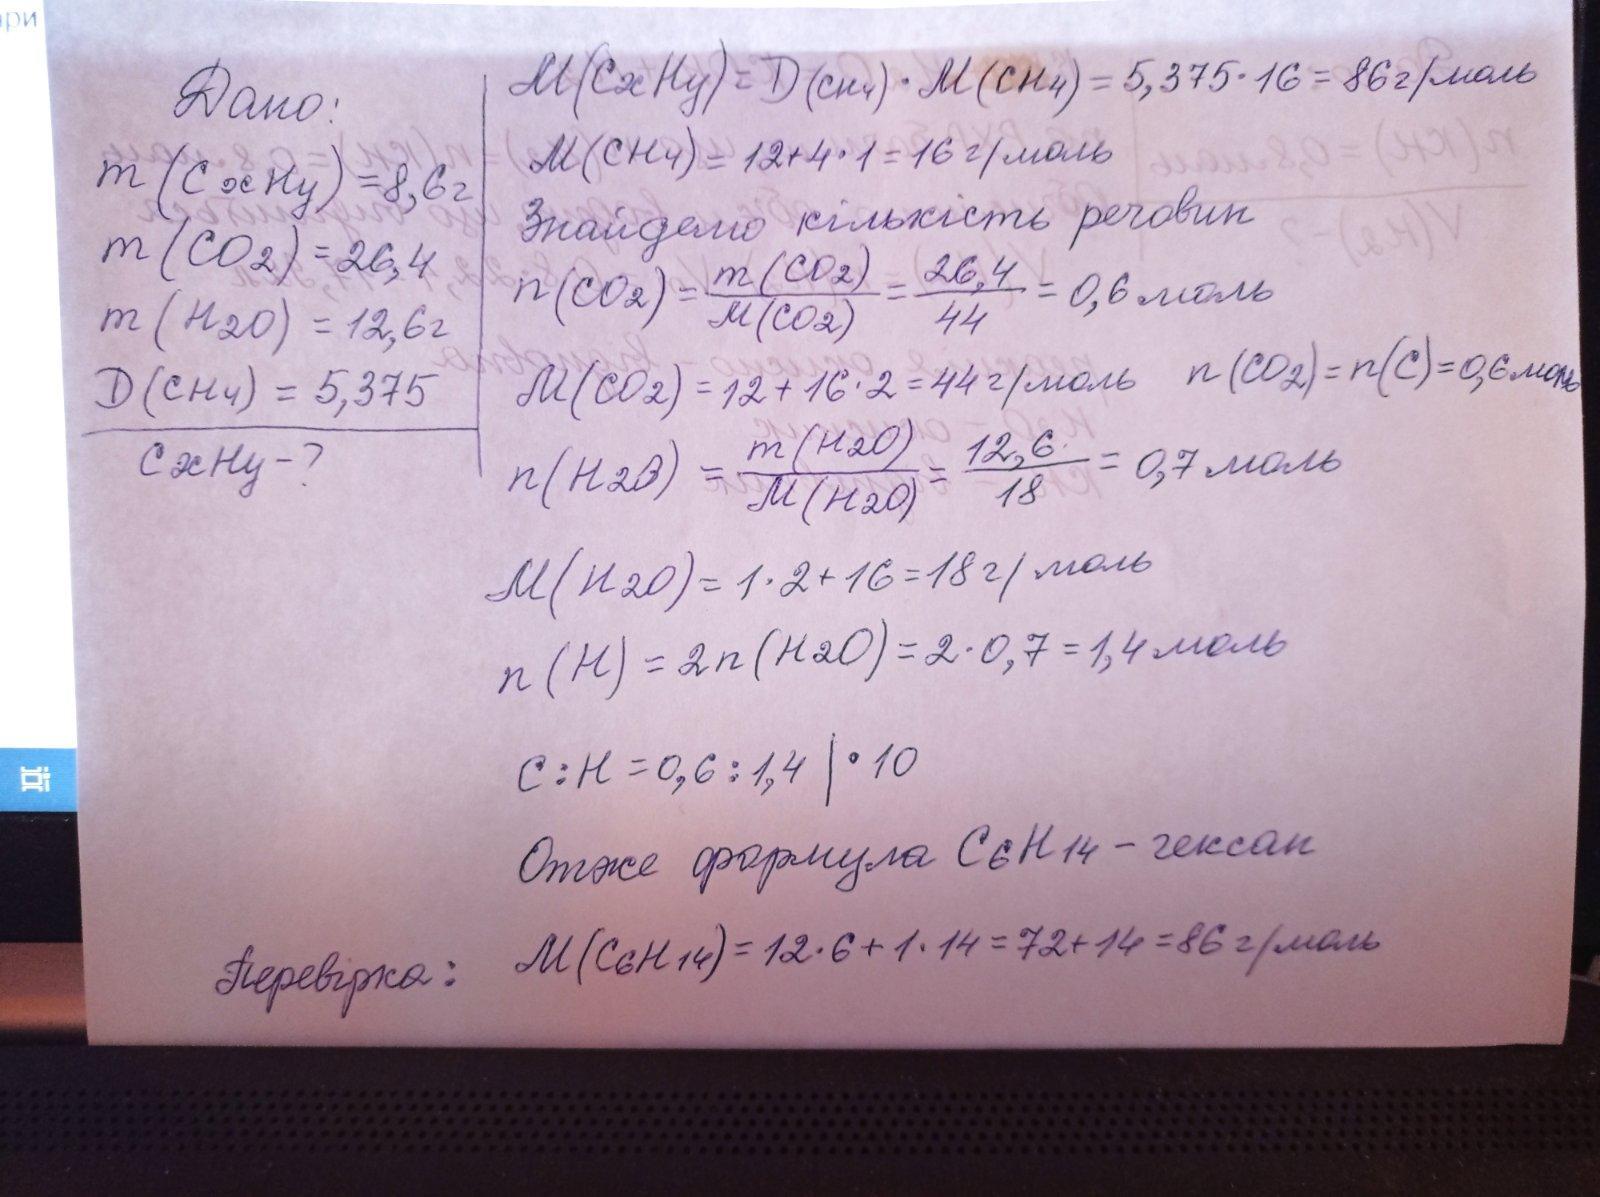 ари
Дано:
m(CxHy)=8,6г
m(CO2)=26,4
m(H2O)=12,6г
D(CH4)=5,375
CxHy-?
M(CxHy)=D(CH4)·M(CH4)=5,375·16=86г/моль
M(CH4)=12+4·1=16г/моль
Знайдемо кількість речовин
n(CO2)=m(CO2)/M(CO2)=26,4/44=0,6моль
M(CO2)=12+16·2=44г/моль n(CO2)=n(C)=0,6моль
n(H2O)=m(H2O)/M(H2O)=12,6/18=0,7моль
M(H2O)=1·2+16=18г/моль
n(H)=2n(H2O)=2·0,7=1,4моль
C:H=0,6:1,4|·10
Отже формула C6H14-гексан
Перевірка: M(C6H14)=12·6+1·14=72+14=86г/моль